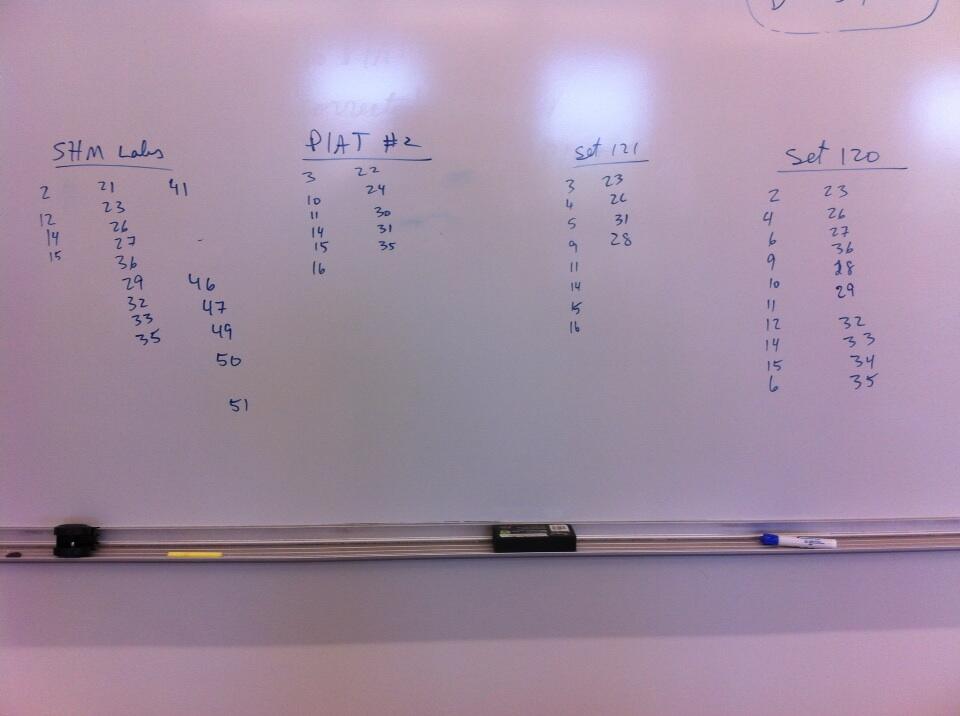 SHM Labs
2 21 41
12 23
14 26
15 27
36
29 46
32 47
33
35 49
50
51
PIAT #2
3 22
10 24
11 30
14 31
15 35
16
Set 121
3 23
4 26
5 31
9 28
11
14
15
16
Set 120
2 23
4 26
6 27
9 36
10 28
11 29
12 32
14 33
15 34
6 35